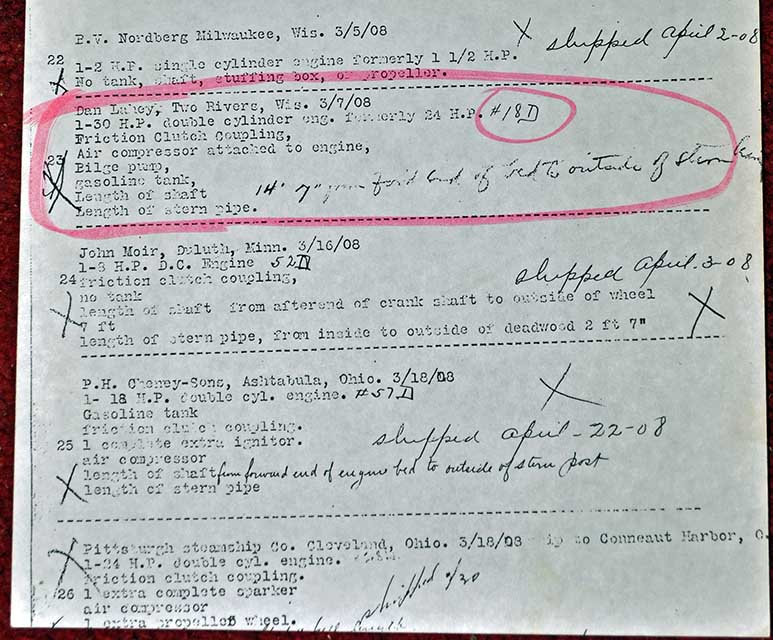 B.V. Nordberg Milwaukee, Wis. 3/5/08
X shipped April 2-08
22 1-2 H.P. single cylinder engine formerly 1 1/2 H.P.
X No tank, shaft, stuffing box, or propeller.
Dan Lahey, Two Rivers, Wis. 3/7/08
1-30 H.P. double cylinder eng. formerly 24 H.P. #18D
Friction Clutch Coupling,
Air compressor attached to engine,
23 Bilge pump,
X gasoline tank,
Length of shaft 14' 7" from for'd end of bed to outside of stern
Length of stern pipe.
John Moir, Duluth, Minn. 3/16/08
1-8 H.P. D.C. Engine 52D
24 friction clutch coupling, shipped April-3-08
no tank
X length of shaft from afterend of crank shaft to outside of wheel X
7 ft
length of stern pipe, from inside to outside of deadwood 2 ft 7"
P.H. Cheney-Sons, Ashtabula, Ohio. 3/18/08
1- 18 H.P. double cyl. engine. #57D X
Gasoline tank
friction clutch coupling.
25 1 complete extra ignitor. shipped april-22-08
air compressor
X length of shaft from forward end of engine bed to outside of stern post
length of stern pipe
X Pittsburgh steamship Co. Cleveland, Ohio. 3/18/08 ip to Conneaut Harbor, O.
1-24 H.P. double cyl. engine.
friction clutch coupling.
26 1 extra complete sparker shipped
air compressor
1 extra propeller wheel.